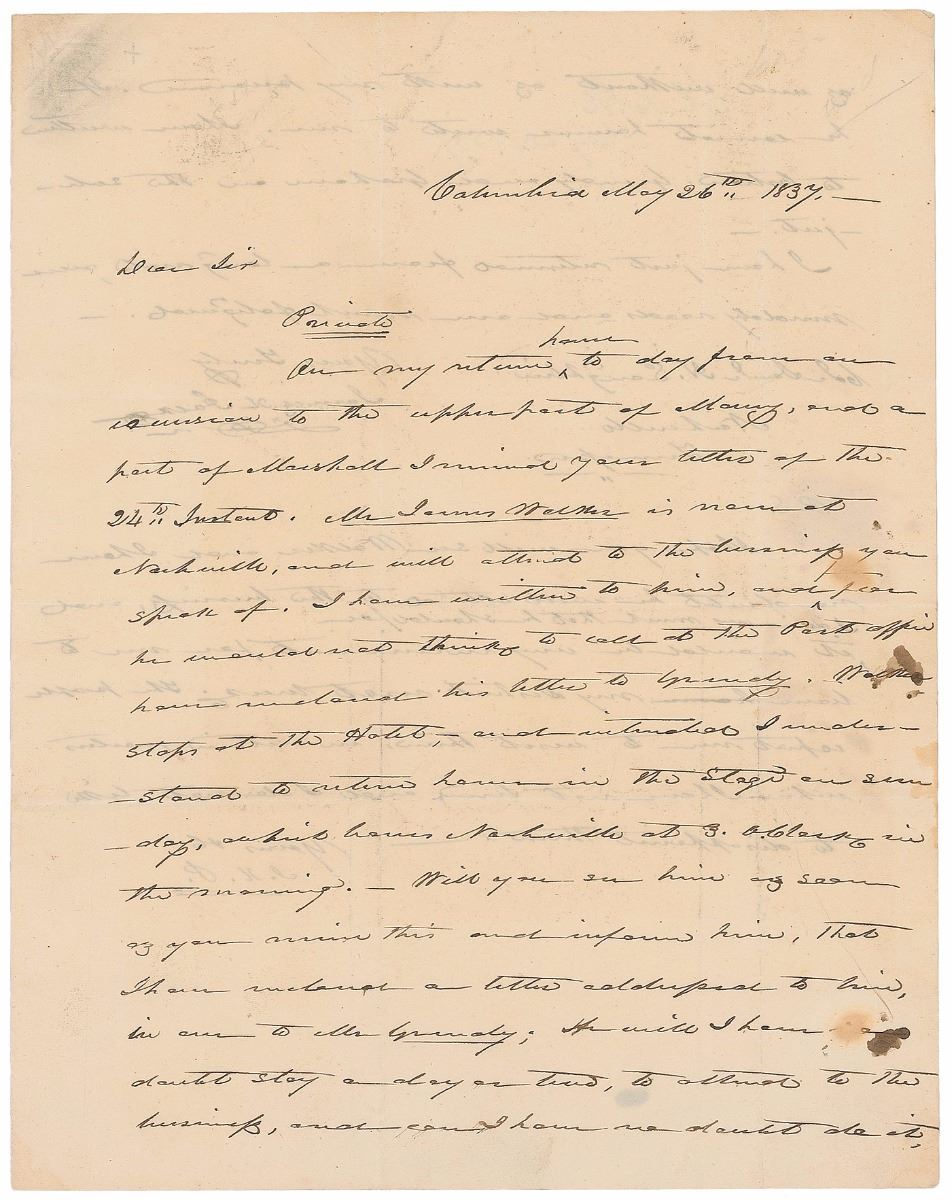 Columbia May 26th 1837. —
Dear Sir
Private
home
On my return ^ to day from an
excursion to the upper part of Maury, and a
part of Marshall I received your letter of the
24th Instant. Mr James Walker is now at
Nashville, and will attend to the business you
speak of. I have written to him, and ^ fear
he would not think to call at the Post office
have enclosed his letter to Grundy. Walker
stops at the Hotel, — and intended I under-
-stand to return home in the Stage on Sun
-day, which leaves Nashville at 3. O.Clock in
the morning. — Will you see him as soon
as you receive this and inform him, that
I have enclosed a letter addressed to him,
in one to Mr Grundy; He will I have no
doubt stay a day or two, to attend to the
business, and can I have no doubt do it,